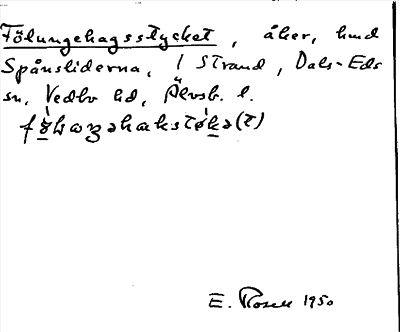 Fölungehagsstycket, åker, hmd
Spånsliderna, 1 Strand, Dals-Eds
sn, Vedbo hd, Älvsb. l.
E. Rosell 1950